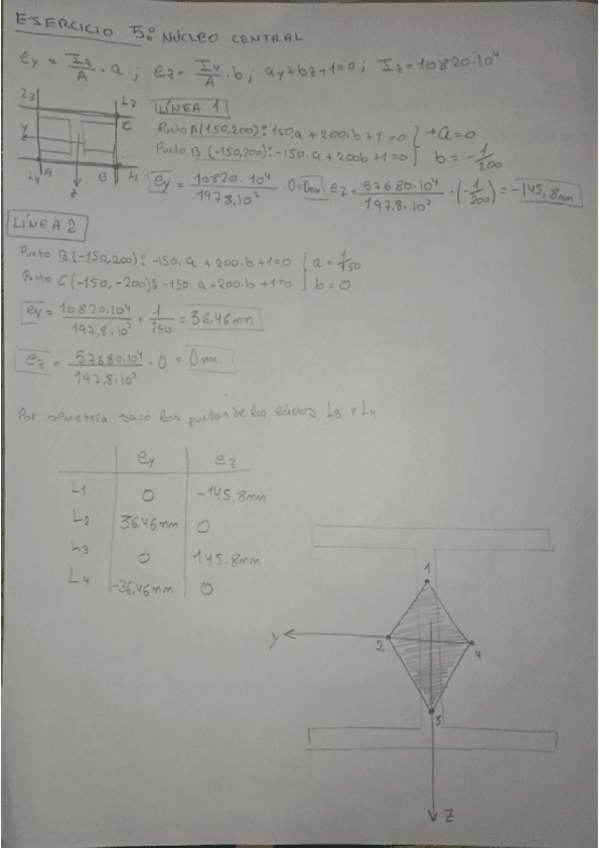 EJERCICIO 5: NÚCLEO CENTRAL
ey = Iz/A · a ; ez = Iy/A · b ; ay+bz+1=0 ; Iz=10820·10⁴
L3 L2
Y C
L4 A B L1
Z
LÍNEA 1
Punto A(150,200): 150.a + 200.b + 1 = 0 } → a=0
Punto B (-150,200): -150.a + 200b + 1 = 0 } b = -1/200
ey = 10820·10⁴/197,8·10² · 0 = 0mm ez = 57680·10⁴/197,8·10² · (-1/200) = -145,8mm
LÍNEA 2
Punto B (-150,200): -150.a + 200.b + 1 = 0 } a = 1/150
Punto C (-150,-200): -150.a - 200.b + 1 = 0 } b = 0
ey = 10820·10⁴/197,8·10² · 1/150 = 36,46mm
ez = 57680·10⁴/197,8·10² · 0 = 0mm
Por simetría saco los puntos de las líneas L3 y L4
ey ez
L1 0 -145,8mm
L2 36,46mm 0
L3 0 145,8mm
L4 -36,46mm 0
1
y 2 4
3
Z